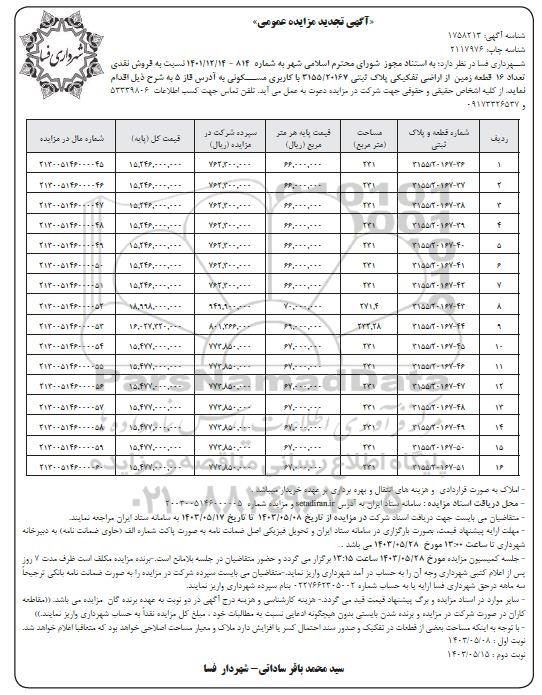 «آگهی تجدید مزایده عمومی»
شهرداری فسا
شناسه آگهی: ۱۷۵۸۲۱۳
شناسه چاپ: ۲۱۱۷۹۷۶
شهرداری فسا در نظر دارد: به استناد مجوز شورای محترم اسلامی شهر به شماره ۸۱۴ - ۱۴۰۱/۱۲/۱۴ نسبت به فروش نقدی
تعداد ۱۶ قطعه زمین از اراضی تفکیکی پلاک ثبتی ۳۱۵۵/۲۰۱۶۷ با کاربری مسکونی به آدرس فاز ۵ به شرح ذیل اقدام
نماید. از کلیه اشخاص حقیقی و حقوقی جهت شرکت در مزایده دعوت به عمل می آید. تلفن تماس جهت کسب اطلاعات ۵۳۳۳۹۸۰۶
و ۰۹۱۷۳۳۲۶۵۳۷
ردیف شماره قطعه و پلاک ثبتی مساحت (متر مربع) قیمت پایه هر متر مربع (ریال) سپرده شرکت در مزایده (ریال) قیمت کل (پایه) شماره مال در مزایده
۱ ۳۱۵۵/۲۰۱۶۷-۳۶ ۲۳۱ ۶۶,۰۰۰,۰۰۰ ۷۶۲,۳۰۰,۰۰۰ ۱۵,۲۴۶,۰۰۰,۰۰۰ ۲۱۳۰۰۵۱۴۶۰۰۰۰۴۵
۲ ۳۱۵۵/۲۰۱۶۷-۳۷ ۲۳۱ ۶۶,۰۰۰,۰۰۰ ۷۶۲,۳۰۰,۰۰۰ ۱۵,۲۴۶,۰۰۰,۰۰۰ ۲۱۳۰۰۵۱۴۶۰۰۰۰۴۶
۳ ۳۱۵۵/۲۰۱۶۷-۳۸ ۲۳۱ ۶۶,۰۰۰,۰۰۰ ۷۶۲,۳۰۰,۰۰۰ ۱۵,۲۴۶,۰۰۰,۰۰۰ ۲۱۳۰۰۵۱۴۶۰۰۰۰۴۷
۴ ۳۱۵۵/۲۰۱۶۷-۳۹ ۲۳۱ ۶۶,۰۰۰,۰۰۰ ۷۶۲,۳۰۰,۰۰۰ ۱۵,۲۴۶,۰۰۰,۰۰۰ ۲۱۳۰۰۵۱۴۶۰۰۰۰۴۸
۵ ۳۱۵۵/۲۰۱۶۷-۴۰ ۲۳۱ ۶۶,۰۰۰,۰۰۰ ۷۶۲,۳۰۰,۰۰۰ ۱۵,۲۴۶,۰۰۰,۰۰۰ ۲۱۳۰۰۵۱۴۶۰۰۰۰۴۹
۶ ۳۱۵۵/۲۰۱۶۷-۴۱ ۲۳۱ ۶۶,۰۰۰,۰۰۰ ۷۶۲,۳۰۰,۰۰۰ ۱۵,۲۴۶,۰۰۰,۰۰۰ ۲۱۳۰۰۵۱۴۶۰۰۰۰۵۰
۷ ۳۱۵۵/۲۰۱۶۷-۴۲ ۲۳۱ ۶۶,۰۰۰,۰۰۰ ۷۶۲,۳۰۰,۰۰۰ ۱۵,۲۴۶,۰۰۰,۰۰۰ ۲۱۳۰۰۵۱۴۶۰۰۰۰۵۱
۸ ۳۱۵۵/۲۰۱۶۷-۴۳ ۲۷۱,۴ ۷۰,۰۰۰,۰۰۰ ۹۴۹,۹۰۰,۰۰۰ ۱۸,۹۹۸,۰۰۰,۰۰۰ ۲۱۳۰۰۵۱۴۶۰۰۰۰۵۲
۹ ۳۱۵۵/۲۰۱۶۷-۴۴ ۲۳۲,۲۸ ۶۹,۰۰۰,۰۰۰ ۸۰۱,۳۶۶,۰۰۰ ۱۶,۰۲۷,۳۲۰,۰۰۰ ۲۱۳۰۰۵۱۴۶۰۰۰۰۵۳
۱۰ ۳۱۵۵/۲۰۱۶۷-۴۵ ۲۳۱ ۶۷,۰۰۰,۰۰۰ ۷۷۳,۸۵۰,۰۰۰ ۱۵,۴۷۷,۰۰۰,۰۰۰ ۲۱۳۰۰۵۱۴۶۰۰۰۰۵۴
۱۱ ۳۱۵۵/۲۰۱۶۷-۴۶ ۲۳۱ ۶۷,۰۰۰,۰۰۰ ۷۷۳,۸۵۰,۰۰۰ ۱۵,۴۷۷,۰۰۰,۰۰۰ ۲۱۳۰۰۵۱۴۶۰۰۰۰۵۵
۱۲ ۳۱۵۵/۲۰۱۶۷-۴۷ ۲۳۱ ۶۷,۰۰۰,۰۰۰ ۷۷۳,۸۵۰,۰۰۰ ۱۵,۴۷۷,۰۰۰,۰۰۰ ۲۱۳۰۰۵۱۴۶۰۰۰۰۵۶
۱۳ ۳۱۵۵/۲۰۱۶۷-۴۸ ۲۳۱ ۶۷,۰۰۰,۰۰۰ ۷۷۳,۸۵۰,۰۰۰ ۱۵,۴۷۷,۰۰۰,۰۰۰ ۲۱۳۰۰۵۱۴۶۰۰۰۰۵۷
۱۴ ۳۱۵۵/۲۰۱۶۷-۴۹ ۲۳۱ ۶۷,۰۰۰,۰۰۰ ۷۷۳,۸۵۰,۰۰۰ ۱۵,۴۷۷,۰۰۰,۰۰۰ ۲۱۳۰۰۵۱۴۶۰۰۰۰۵۸
۱۵ ۳۱۵۵/۲۰۱۶۷-۵۰ ۲۳۱ ۶۷,۰۰۰,۰۰۰ ۷۷۳,۸۵۰,۰۰۰ ۱۵,۴۷۷,۰۰۰,۰۰۰ ۲۱۳۰۰۵۱۴۶۰۰۰۰۵۹
۱۶ ۳۱۵۵/۲۰۱۶۷-۵۱ ۲۳۱ ۶۷,۰۰۰,۰۰۰ ۷۷۳,۸۵۰,۰۰۰ ۱۵,۴۷۷,۰۰۰,۰۰۰ ۲۱۳۰۰۵۱۴۶۰۰۰۰۶۰
ParsNamadData
پایگاه اطلاع رسانی مناقصه و مزایده
- املاک به صورت قراردادی و هزینه های انتقال و بهره برداری بر عهده خریدار میباشد.
- محل دریافت اسناد مزایده: سامانه ستاد ایران به آدرس setadiran.ir و شماره
- متقاضیان می بایست جهت دریافت اسناد شرکت در مزایده از تاریخ ۱۴۰۳/۰۵/۰۸ تا تاریخ ۱۴۰۳/۰۵/۱۷ به سامانه ستاد ایران مراجعه نمایند.
- مهلت ارایه پیشنهاد قیمت، بصورت بارگزاری در سامانه ستاد ایران و تحویل فیزیکی اصل ضمانت نامه به صورت پاکت شماره الف (حاوی ضمانت نامه) به دبیرخانه
شهرداری تا ساعت ۱۳:۰۰ مورخ ۱۴۰۳/۰۵/۲۸ می باشد.
- جلسه کمیسیون مزایده مورخ ۱۴۰۳/۰۵/۲۸ ساعت ۱۳:۱۵ برگزار می گردد و حضور متقاضیان در جلسه بلامانع است.-برنده مزایده مکلف است ظرف مدت ۷ روز
پس از اعلام کتبی شهرداری وجه آن را به حساب در آمد شهرداری واریز نماید.-متقاضیان می بایست سپرده شرکت در مزایده را به صورت ضمانت نامه بانکی ترجیحاً
یک ماهه درحق شهرداری فسا ارایه یا به حساب شماره ۰۲۲۷۶۶۲۳۰۵۰۰۲ بنام سپرده شهرداری واریز نمایند.
- سایر موارد در اسناد مزایده و برگ پیشنهاد قیمت قید می گردد.- هزینه کارشناسی و هزینه درج آگهی در دو نوبت به عهده برنده گان مزایده می باشد. ((مقاطعه
کاران در صورت شرکت در مزایده و برنده شدن بایستی بدون هیچگونه ادعایی نسبت به مطالبات خود ، مبلغ کل مزایده نقداً به حساب شهرداری واریز نمایند.))
- با توجه به اینکه مساحت بعضی از قطعات در تفکیک و صدور سند احتمال کسر یا افزایش دارد ملاک و معیار مساحت اصلاحی خواهد بود که متعاقبا اعلام خواهد شد.
نوبت اول : ۱۴۰۳/۰۵/۰۸
نوبت دوم : ۱۴۰۳/۰۵/۱۵
سید محمد باقر ساداتی- شهردار فسا